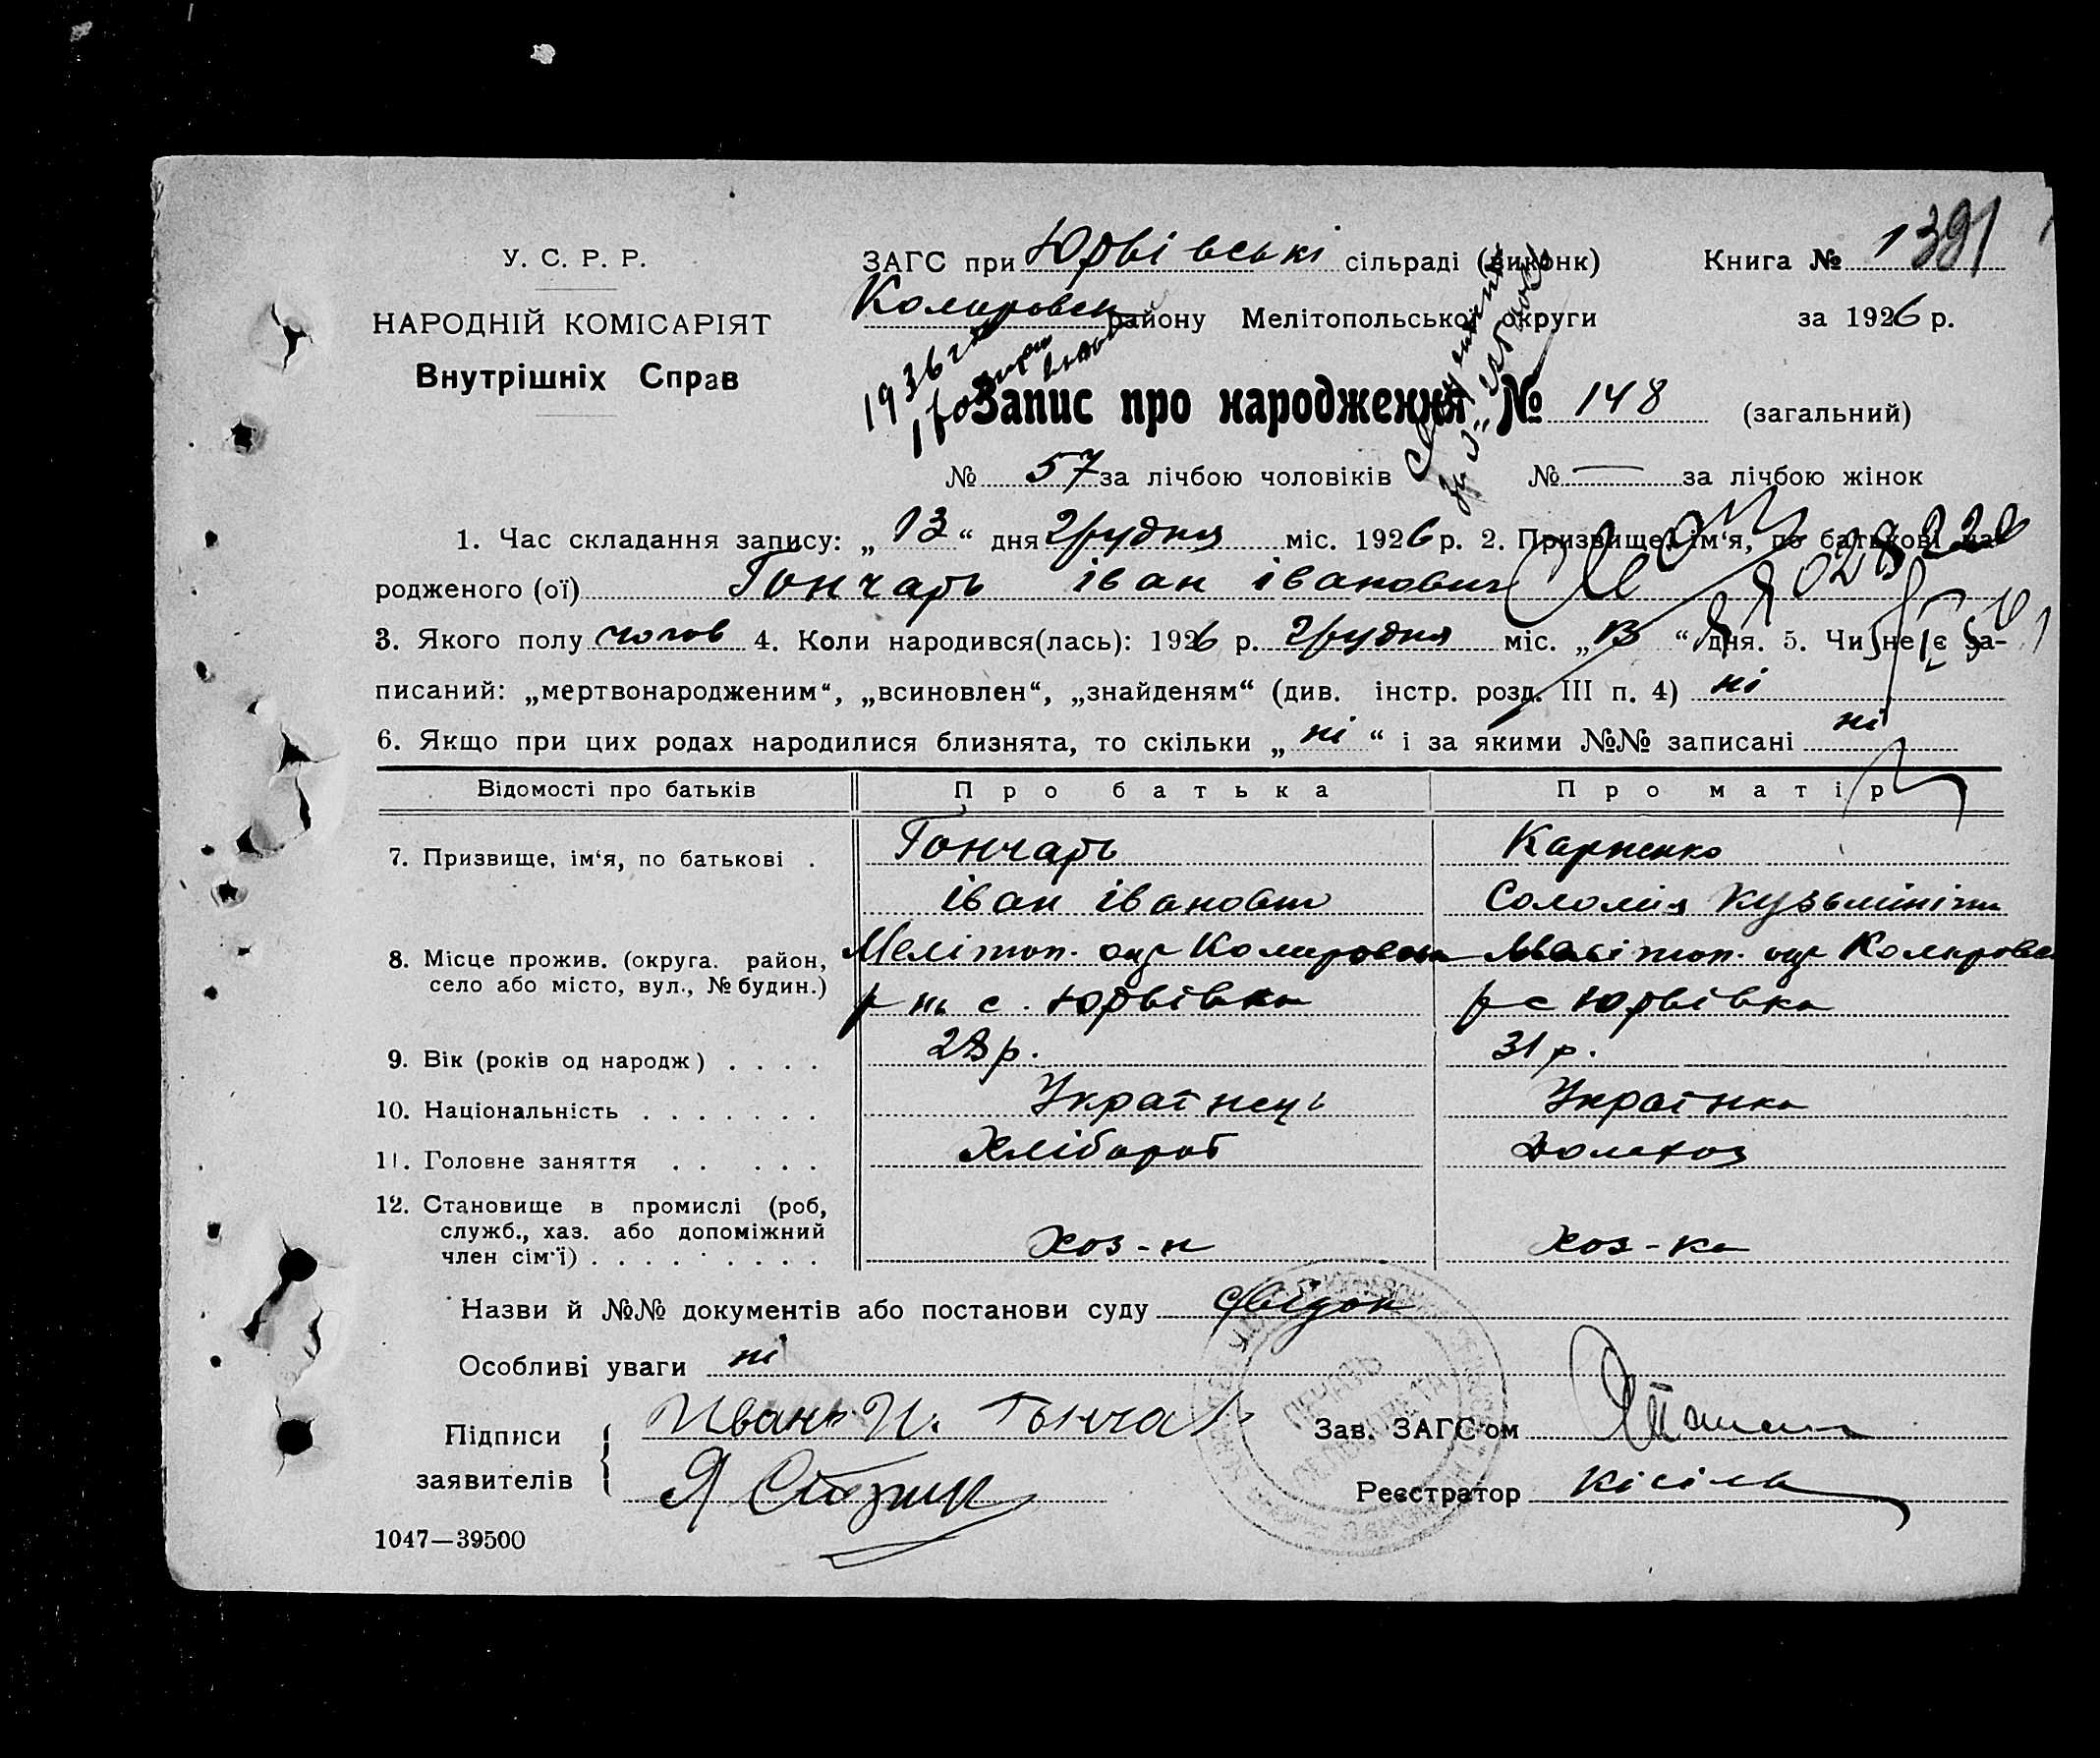 У. С. Р. Р.
НАРОДНІЙ КОМІСАРІЯТ
Внутрішніх Справ
ЗАГС при Юрвівські сільраді (виконк) Книга № 1391
Коларовськ району Мелітопольської округи за 1926 р.
1936
Запис про народження № 148 (загальний)
№ 57 за лічбою чоловіків № — за лічбою жінок
1. Час складання запису: „13“ дня Грудня міс. 1926 р. 2. Призвище, ім‘я, по батькові на-
родженого (ої) Гончарь іван іванович
3. Якого полу чолов 4. Коли народився(лась): 1926 р. Грудня міс. „ “ дня. 5. Чи не є за-
писаний: „мертвонародженим“, „всиновлен“, „знайденям“ (див. інстр. розд. III п. 4) ні
6. Якщо при цих родах народилися близнята, то скільки „ні“ і за якими №№ записані ні
Відомості про батьків Про батька Про матір
7. Призвище, ім‘я, по батькові . Гончарь Карпенко
іван іванович Соломія
8. Місце прожив. (округа. район, Мелітоп. окр Коларовськ Мелітоп. окр Коларовськ
село або місто, вул., № будин.) р на с. Юрвівка р с Юрвівка
9. Вік (років од народж) . . . . 28 р. 31 р.
10. Національність . . . . . . . Українець Українка
11. Головне заняття . . . . . Хлібороб домохоз
12. Становище в промислі (роб,
служб., хаз. або допоміжний
член сім‘ї) . . . . . . . . Хоз-н хоз-ка
Назви й №№ документів або постанови суду свідок
Особливі уваги ні
ПЕЧАТЬ
Підписи Иванъ И. Гончар Зав. ЗАГС‘ом
заявителів Я Реєстратор Кісіль
1047—39500